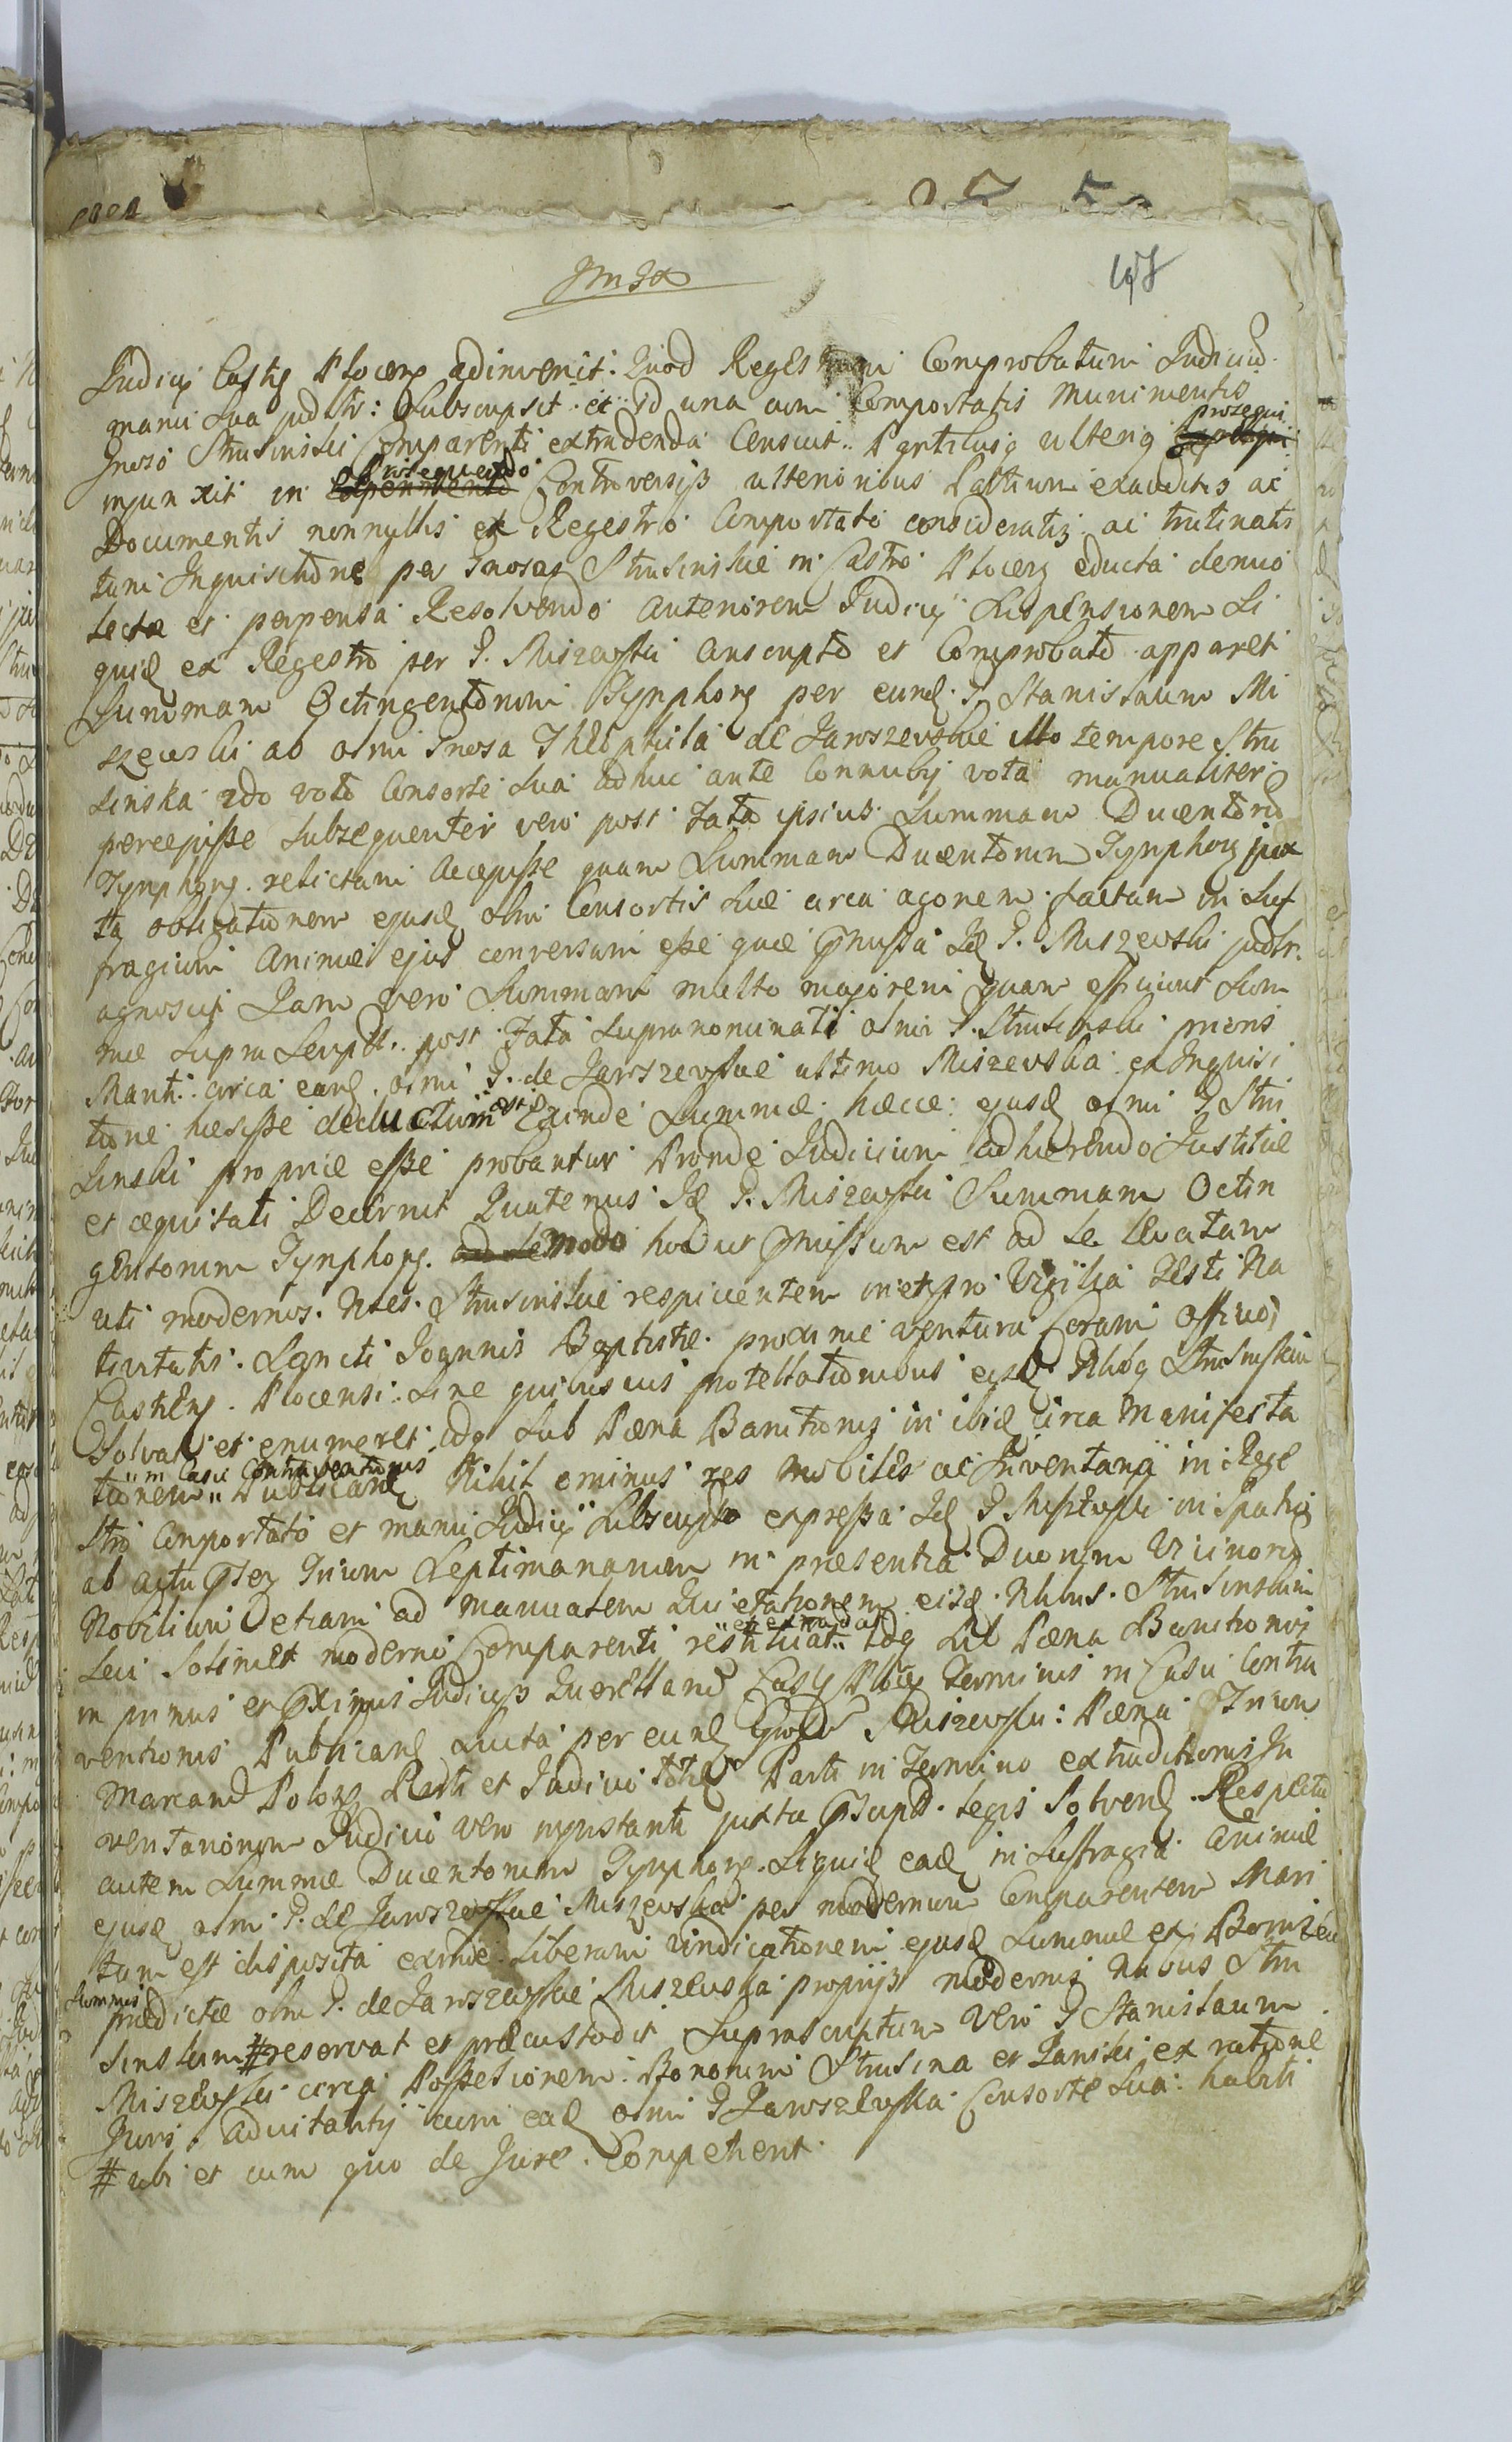 Judicÿ Castr Plocens adinvenit: Quod Regestrum Comprobatum Judiciū
manu sua judtr: Subscripsit et id una cum Comportatis Munimentis
Gnoso Strusinski Comparenti extradenda Censuit. Partibusq ulterq prosequi
injunxit in Prosequendo Controversÿs ulterioribus Partium exauditis ac
Documentis nonnullis et Regestro Comportato consideratis ac trutinatis
tum Inquisitione per Gnosos Strusinskie in Castro Plocens educta denuo
lecta et perpensa Resolvendo anteriorem Judicÿ Suspensionem Si
quid ex Regestro per G. Miszewski conscripto et Comprobato apparet
Summam Octingentorum Tynphorg per eund G. Stanislaum Mi
szewski ab olmi Gnosa Theophila de Jaroszewskie illo tempore Stru
sinska 2do voto Consorte sua adhuc ante Connubÿ vota manualiter
percepisse subsequenter vero post Fata ipsius Summam Ducentorū
Tynphorg relictam accepisse quam Summam Ducentorum Tynphorg jux
ta obligationem ejusd olmi Consortis suæ circa agonem factam in suf
fragium animæ ejus conversam esse quæ præmissa Id G. Miszewski judtr
agnoscit Jam vero Summam multo majorem quam efficiunt Sum
mæ supra scriptæ post Fata supranominati olmi G. Strusinski prioris
Mariti circa eand olmi G. de Jaroszewskie ultimo Miszewska ex Inquisi
tione hæsisse deductum est Exinde Summæ hæcce ejusd olmi G Stru
sinski propriæ esse probantur Proinde Judicium adhærendo Justitiæ
et æquitati Decrevit Quatenus Id G. Miszewski Summam Octin
gentorum Tynphorg. modo hoc ut præmissum est ad se levatam
uti modernos Nbles Strusinskie respicientem in et pro Vigilia Festi Na
tivitatis Sancti Joannis Baptistæ proxime ventura Coram Officio
Castrens Plocensi sine quibusvis protestationibus eisd Nblbg Strusinskim
Solvat et enumeret Idq sub Pæna Bannitionis in ibid circa Manifesta
tionem in Casu Contraventionis Publicand Nihil ominus res mobiles ac Inventaria in Rege
stro Comportato et manu Judicÿ subscripto expressa Id G Miszewski in spatio
ab actu præsen Trium Septimanarum in præsentia Duorum Vicinorū
Nobilium etiam ad manualem Quietationem eisd Nblbus Strusinskim
seu Solimet moderno Comparenti restituat et extradat Idq sub Pæna Bannitionis
in primis et proximis Judicÿs Querellarū Castr Ploc Terminis in Casu Contra
ventionis Publicand Lucta per eund Miszewski Pæna Trium
Marcarū Polong Parti et Judicio toties Parti in Termino extraditionis In
ventariorum Judicio vero in juxta præscript legis Solvend. Respectu
autem Summæ Ducentorum Tynphorg. Siquid ead in Suffragia Animæ
ejusd olmi G. de Jaroszewskie Miszewska per modernum Comparentem Mari
tum est disposita exinde liberam vindicationem ejusd Summæ ex Bonis
Summis
prædictæ olmi G. de Jaroszewskie Miszewska proprÿs modernis Nblbus Stru
sinskim # reservat et præcustodit Suprascriptum vero G Stanislaum
Miszewski circa Possessionem Bonorum Strusina et Janski ex ratione
Juris advitalitÿ cum ead olmi G Jaroszewska Consorte sua habiti
# ubi et cum quo de Jure Competierit